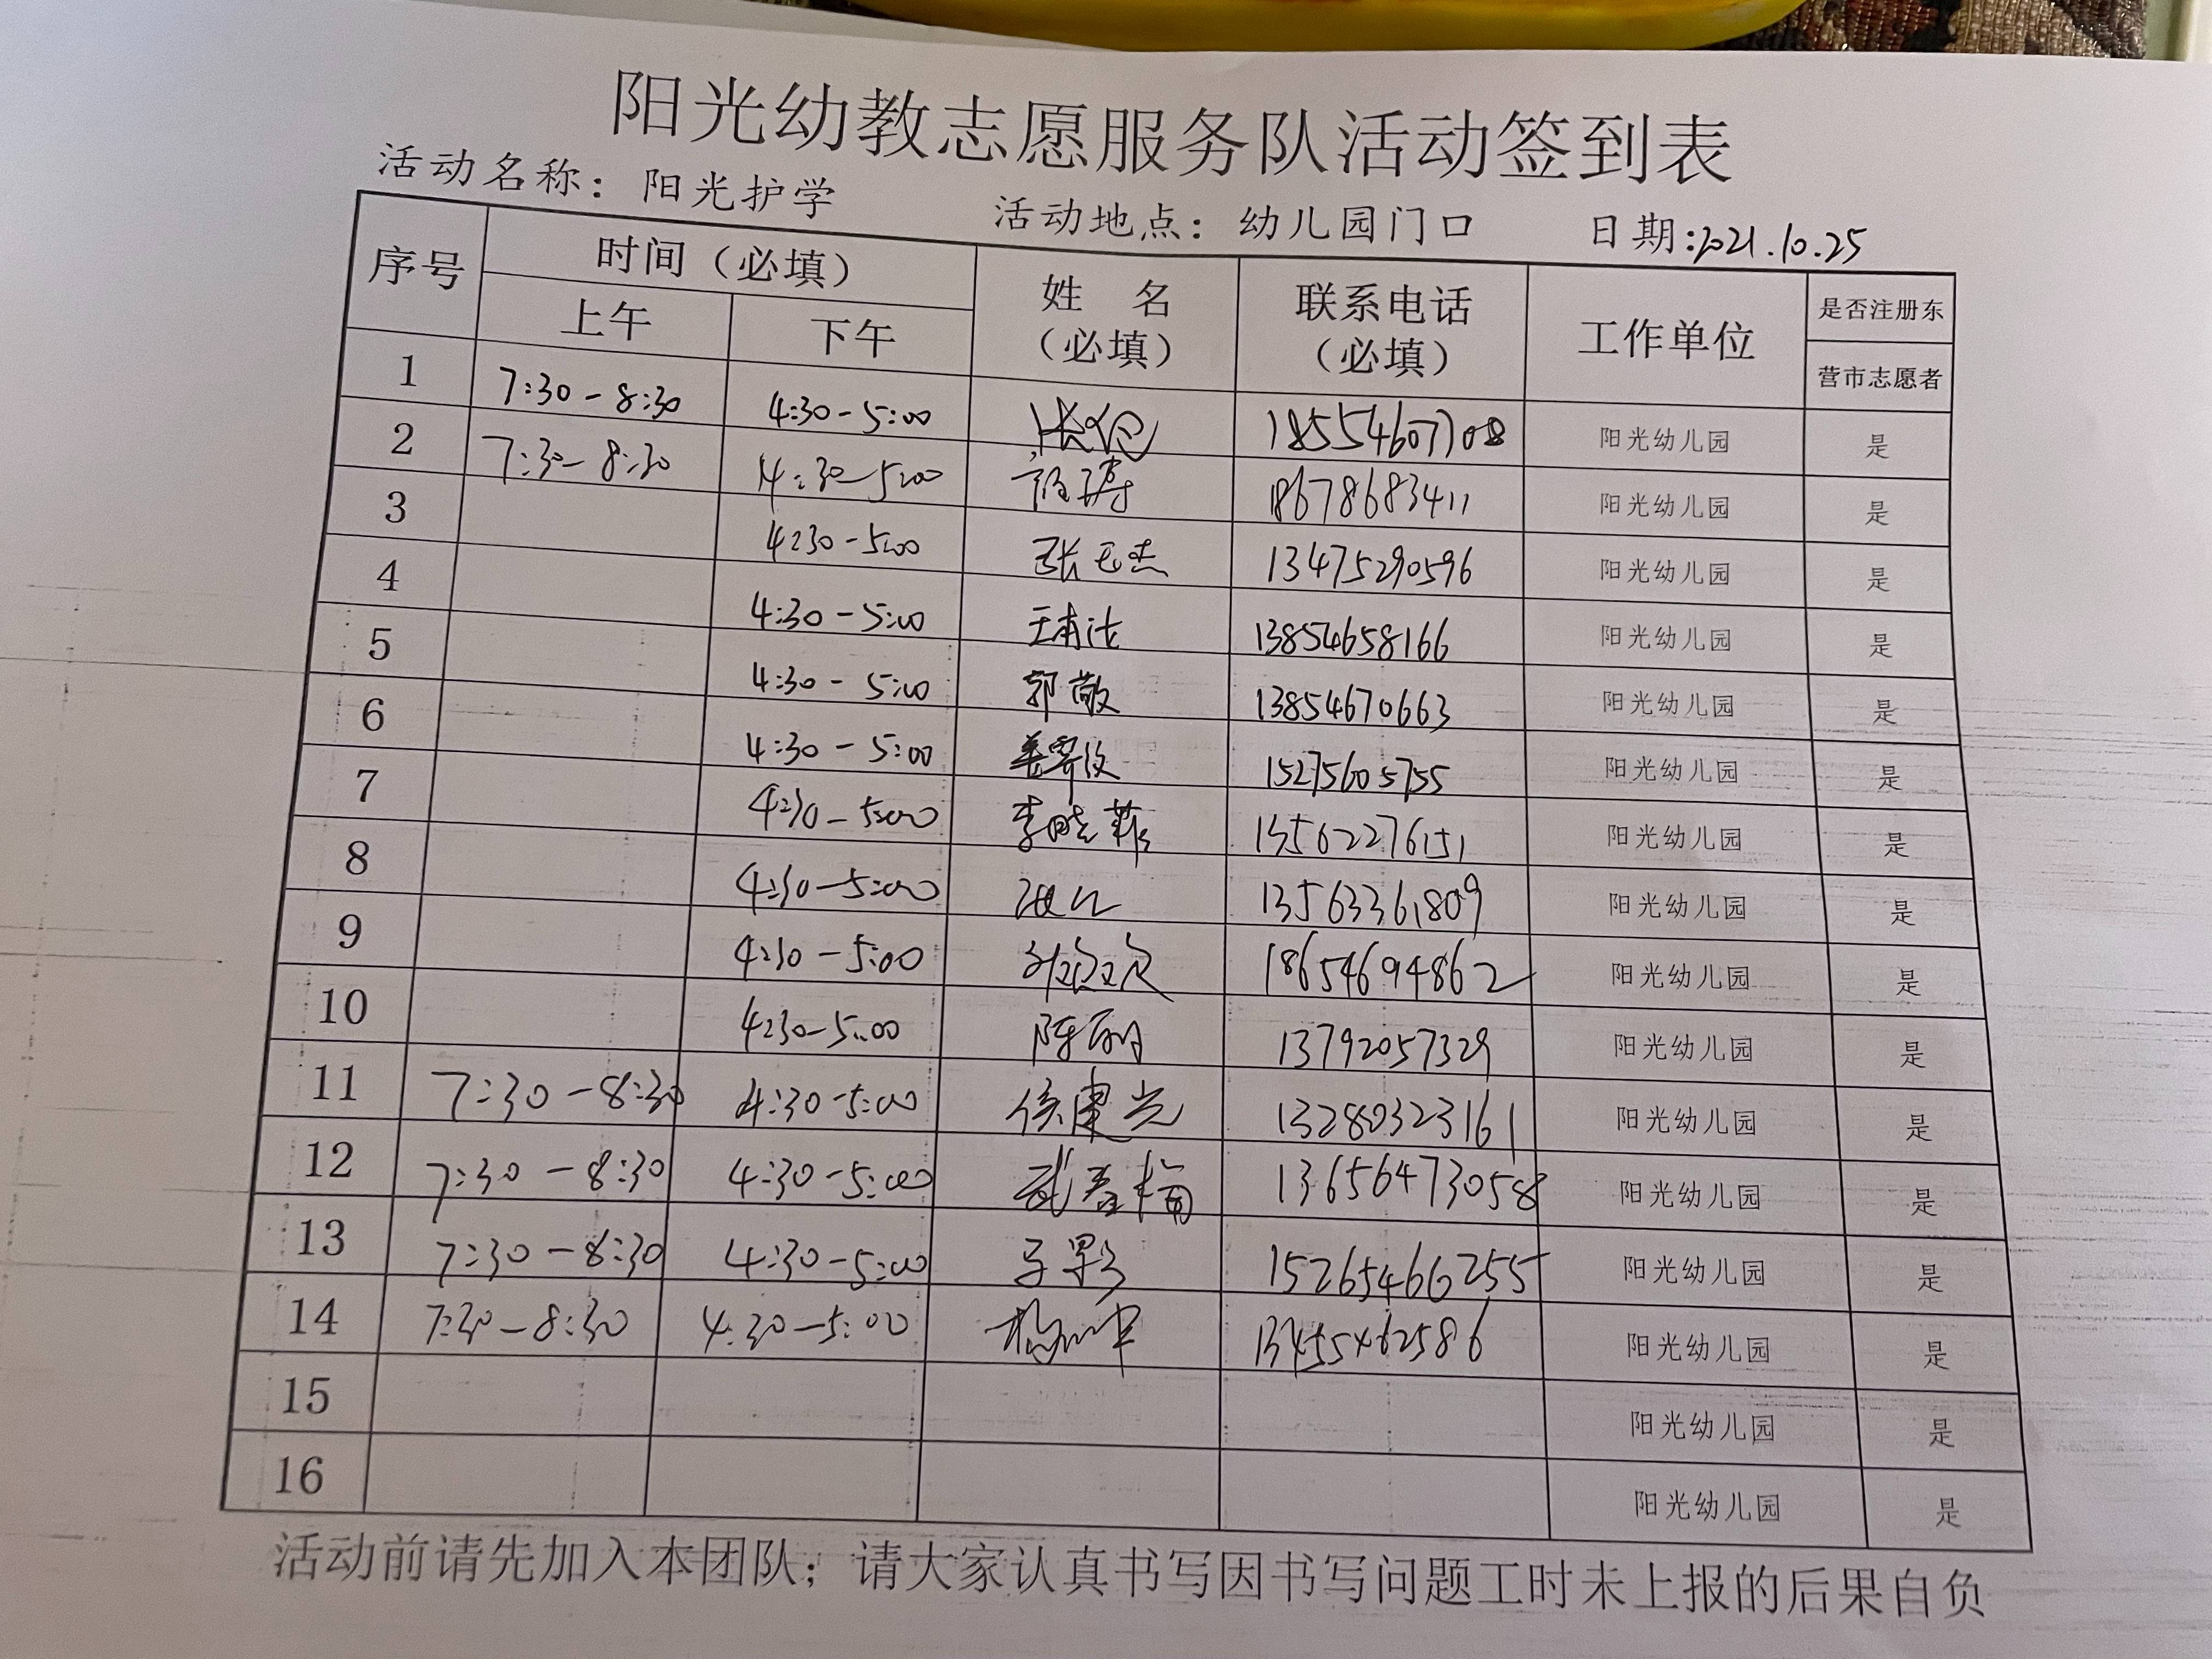 阳光幼教志愿服务队活动签到表
活动名称：阳光护学 活动地点：幼儿园门口 日期:2021.10.25
序号 时间（必填） 姓 名（必填） 联系电话（必填） 工作单位 是否注册东营市志愿者
上午 下午
1 7:30-8:30 4:30-5:00 18554607708 阳光幼儿园 是
2 7:30-8:30 4:30-5:00 18678683411 阳光幼儿园 是
3 4:30-5:00 13475290596 阳光幼儿园 是
4 4:30-5:00 13854658166 阳光幼儿园 是
5 4:30-5:00 郭敬 13854670663 阳光幼儿园 是
6 4:30-5:00 15275605755 阳光幼儿园 是
7 4:30-5:00 李晓菲 13562276151 阳光幼儿园 是
8 4:30-5:00 13563361809 阳光幼儿园 是
9 4:30-5:00 18654694862 阳光幼儿园 是
10 4:30-5:00 陈丽 13792057329 阳光幼儿园 是
11 7:30-8:30 4:30-5:00 徐建光 13280323161 阳光幼儿园 是
12 7:30-8:30 4:30-5:00 武春梅 13656473058 阳光幼儿园 是
13 7:30-8:30 4:30-5:00 15265466255 阳光幼儿园 是
14 7:30-8:30 4:30-5:00 13455462586 阳光幼儿园 是
15 阳光幼儿园 是
16 阳光幼儿园 是
活动前请先加入本团队；请大家认真书写因书写问题工时未上报的后果自负